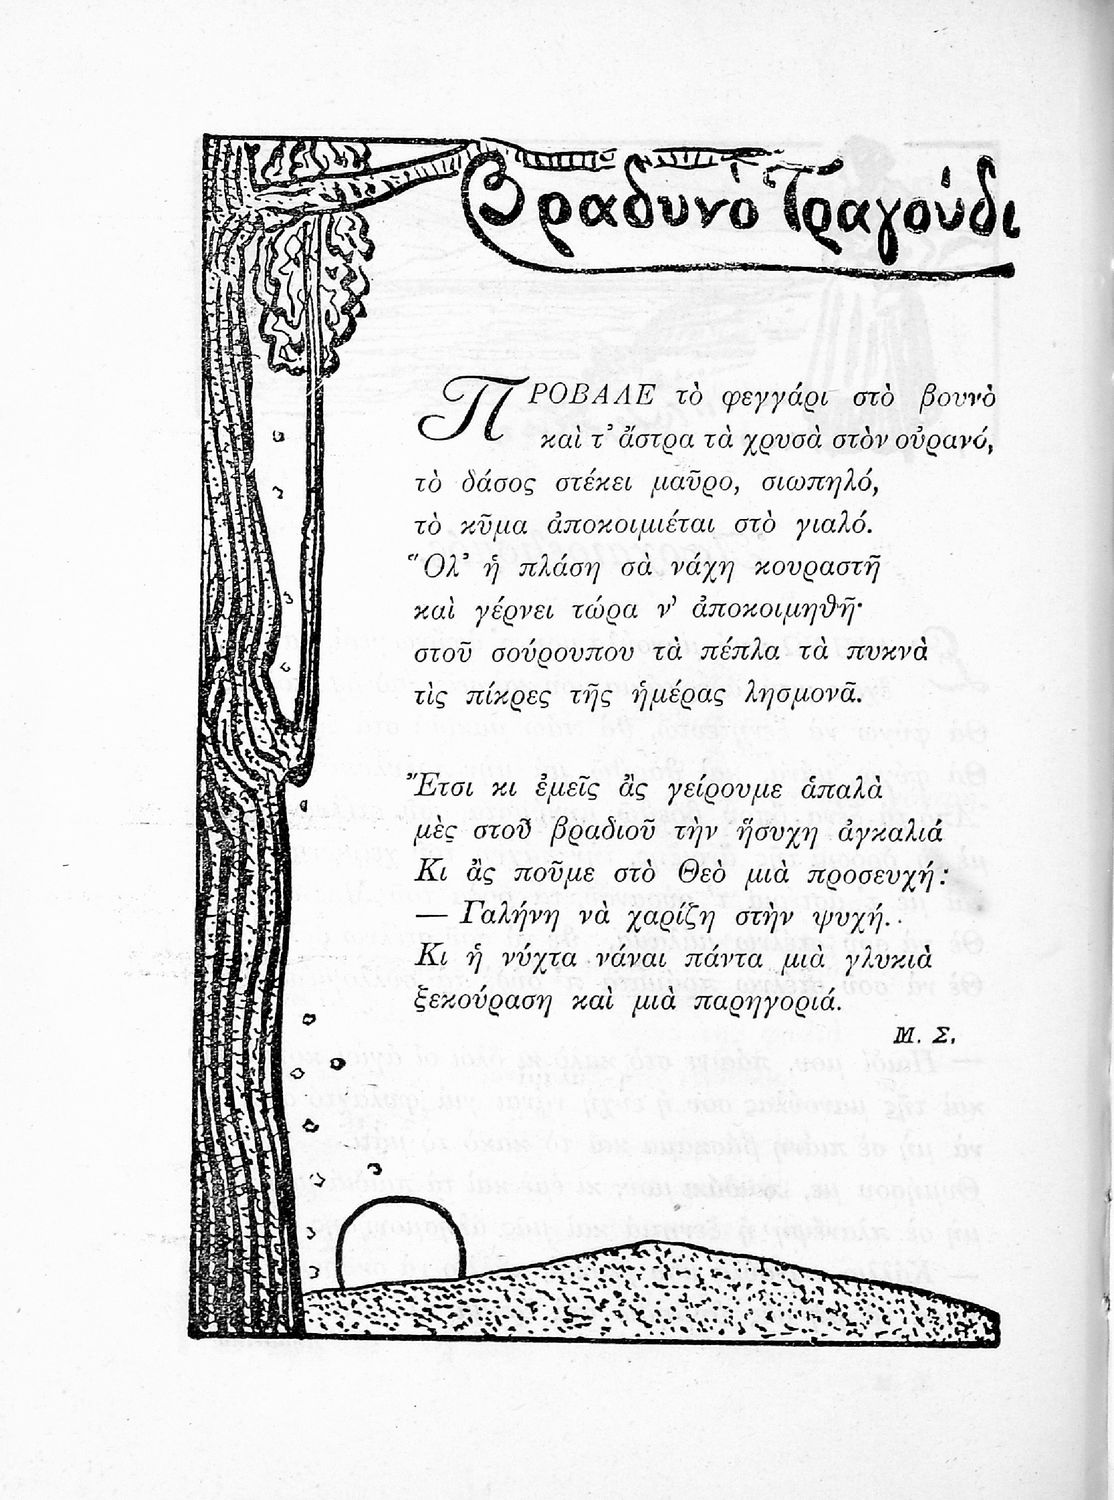 Βραδυνὸ Τραγούδι
ΠΡΟΒΑΛΕ τὸ φεγγάρι στὸ βουνὸ
καὶ τ' ἄστρα τὰ χρυσᾶ στὸν οὐρανό,
τὸ δάσος στέκει μαῦρο, σιωπηλό,
τὸ κῦμα ἀποκοιμιέται στὸ γιαλό.
Ὅλ' ἡ πλάση σὰ νάχῃ κουραστῆ
καὶ γέρνει τώρα ν' ἀποκοιμηθῆ·
στοῦ σούρουπου τὰ πέπλα τὰ πυκνὰ
τὶς πίκρες τῆς ἡμέρας λησμονᾶ.
Ἔτσι κι ἐμεῖς ἂς γείρουμε ἁπαλὰ
μὲς στοῦ βραδιοῦ τὴν ἥσυχη ἀγκαλιά
Κι ἂς ποῦμε στὸ Θεὸ μιὰ προσευχή:
— Γαλήνη νὰ χαρίζη στὴν ψυχή.
Κι ἡ νύχτα νἄναι πάντα μιὰ γλυκιὰ
ξεκούραση καὶ μιὰ παρηγοριά.
Μ. Σ.